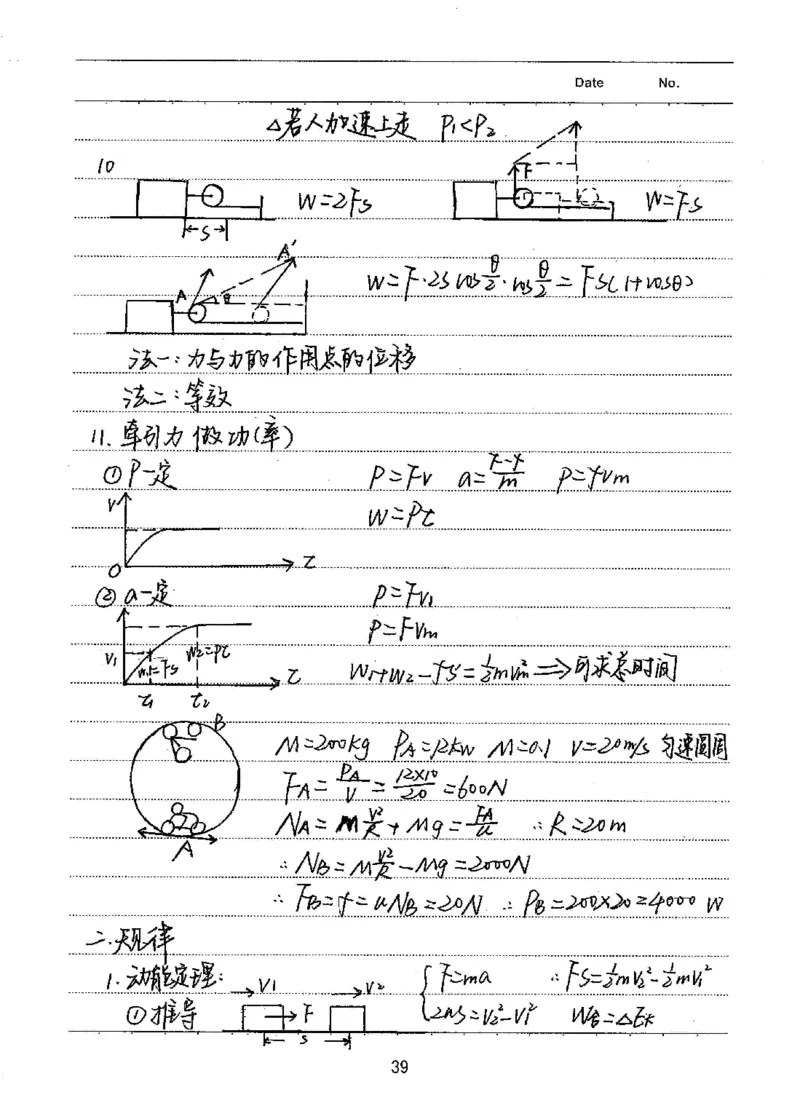 Date No.
△若人加速上走 P₁<P₂
10
W=2Fs
F
W=Fs
S
A A' θ
W=F·2S cos θ/2 · cos θ/2 = FS(1+cosθ)
法一:力与力的作用点的位移
法二:等效
11. 牵引力做功(率)
① P一定 P=Fv a=F-f/m P=fvm
V W=Pt
O t
② a一定 P=Fv₁
P=Fvm
V₁ W₁=Fs W₂=Pt t W₁+W₂-fS=½mvm² ⟹可求总时间
t₁ t₂
B
M=200kg PA=12kw M=0.1 V=20m/s 匀速圆周
FA = PA/V = 12×10/20 = 600N
NA = M V²/R + Mg = FA/u ∴R=20m
A
∴NB = M V²/R - Mg = 2000N
∴FB=f=uNB=20N ∴PB=200×20=4000 W
二.规律
1.动能定理: V1 V2 { F=ma ∴FS=½mV₂²-½mV₁²
①推导 F 2as=V₂²-V₁² W合=ΔEk
S
39